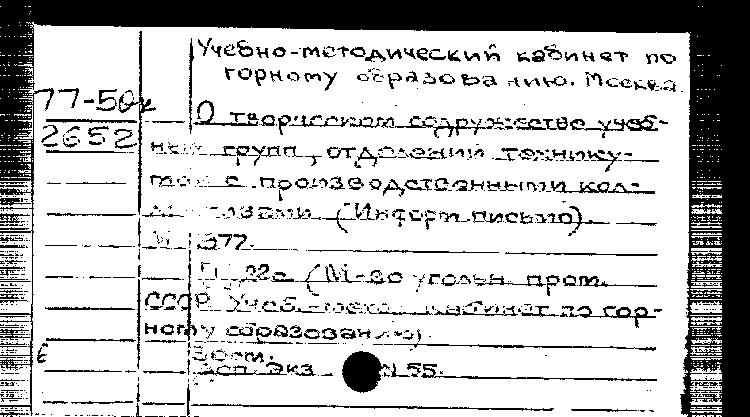 Учебно-методический кабинет по
горному образованию. Москва.
77-50к
2652
О творческом содружестве учеб-
ных групп, отделений технику-
мов с производственными кол-
(Информ. письмо).
М 1977.
22с (М-во угольн. пром.
СССР. Учеб.-метод. кабинет по гор-
ному образованию)
Экз. N 55.
б